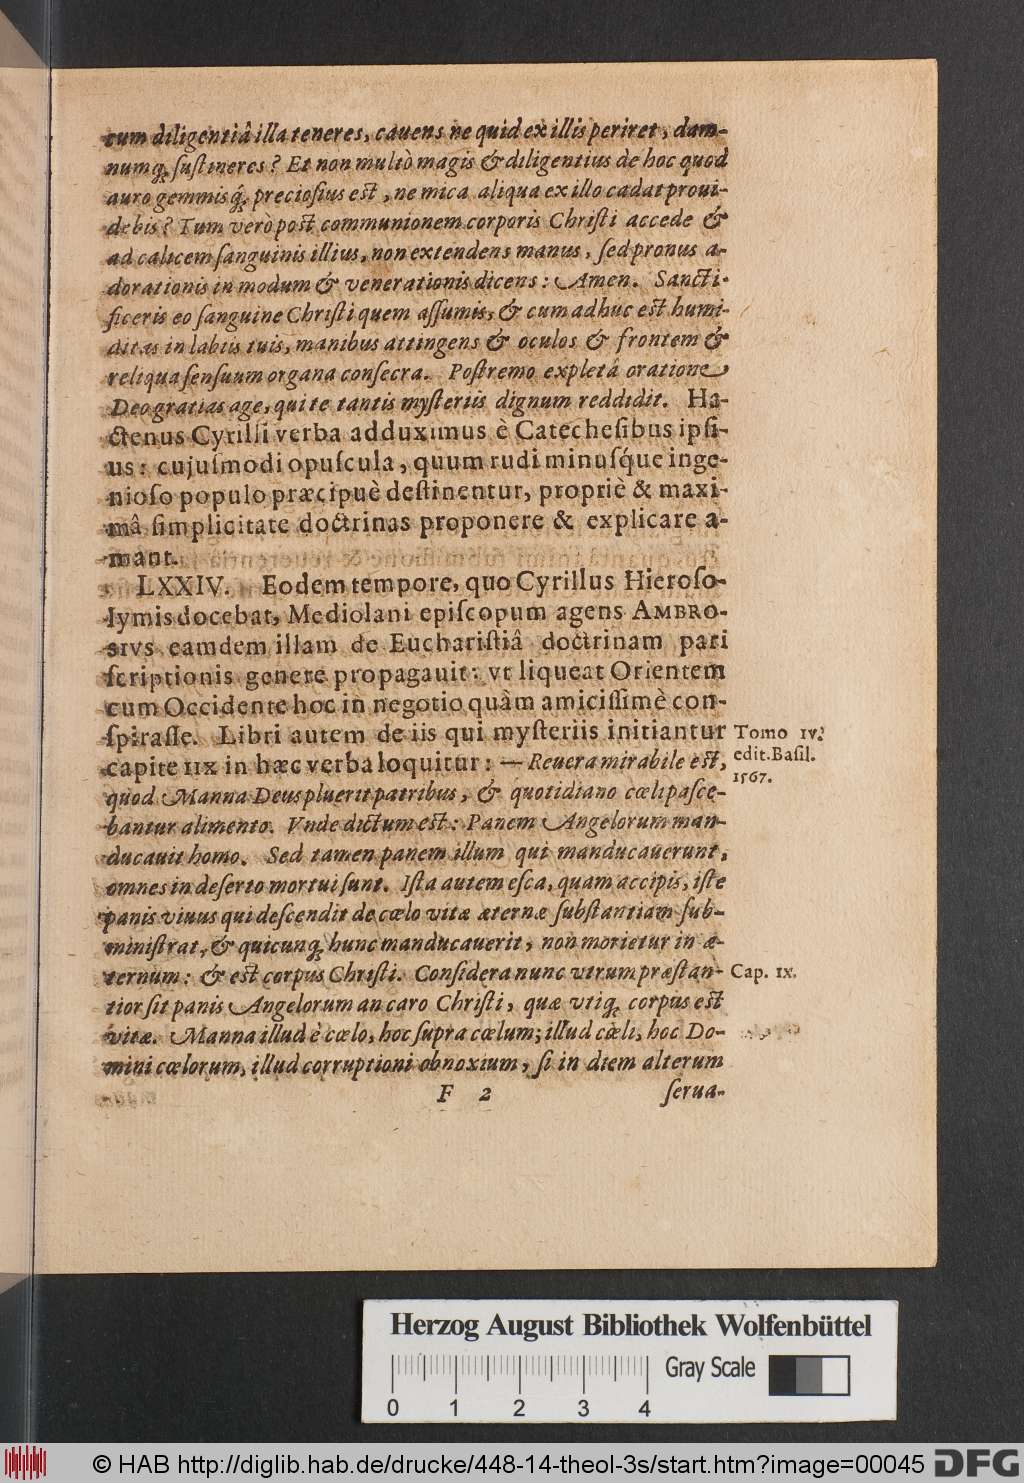 cum diligentiâ illa teneres, cauens ne quid ex illis periret, dam-
numq́; ſuſtineres? Et non multò magis & diligentius de hoc quod
auro gemmisq́; precioſius est, ne mica aliqua ex illo cadat proui-
debis? Tum verò post communionem corporis Chriſti accede &
ad calicem ſanguinis illius, non extendens manus, ſed pronus a-
dorationis in modum & venerationis dicens: Amen. Sancti-
ficeris eo ſanguine Chriſti quem aſſumis, & cum adhuc est humi-
ditas in labiis tuis, manibus attingens & oculos & frontem &
reliqua ſenſuum organa conſecra. Poſtremo expletâ oratione
Deo gratias age, qui te tantis myſteriis dignum reddidit. Ha-
ctenus Cyrilli verba adduximus è Catecheſibus ipſi-
us: cujuſmodi opuſcula, quum rudi minuſq́ue inge-
nioſo populo præcipuè deſtinentur, propriè & maxi-
mâ ſimplicitate doctrinas proponere & explicare a-
mant.
LXXIV. Eodem tempore, quo Cyrillus Hieroſo-
lymis docebat, Mediolani epiſcopum agens AMBRO-
SIVS eamdem illam de Euchariſtiâ doctrinam pari
ſcriptionis genere propagauit: vt liqueat Orientem
cum Occidente hoc in negotio quàm amiciſſimè con-
ſpiraſſe. Libri autem de iis qui myſteriis initiantur
Tomo IV.
edit. Baſil.
1567.
capite IIX in hæc verba loquitur: — Reuera mirabile est,
quod Manna Deus pluerit patribus, & quotidiano cœli paſce-
bantur alimento. Vnde dictum est: Panem Angelorum man-
ducauit homo. Sed tamen panem illum qui manducauerunt,
omnes in deſerto mortui ſunt. Iſta autem eſca, quam accipis, iſte
panis viuus qui deſcendit de cœlo vitæ æternæ ſubſtantiam ſub-
miniſtrat, & quicunq; hunc manducauerit, non morietur in æ-
ternum: & est corpus Chriſti. Conſidera nunc vtrum præſtan-
Cap. IX.
tior ſit panis Angelorum an caro Chriſti, quæ vtiq; corpus est
vitæ. Manna illud è cœlo, hoc ſupra cœlum; illud cœli, hoc Do-
mini cœlorum, illud corruptioni obnoxium, ſi in diem alterum
F 2 ſerua-
Herzog August Bibliothek Wolfenbüttel
Gray Scale
0 1 2 3 4
© HAB http://diglib.hab.de/drucke/448-14-theol-3s/start.htm?image=00045
DFG